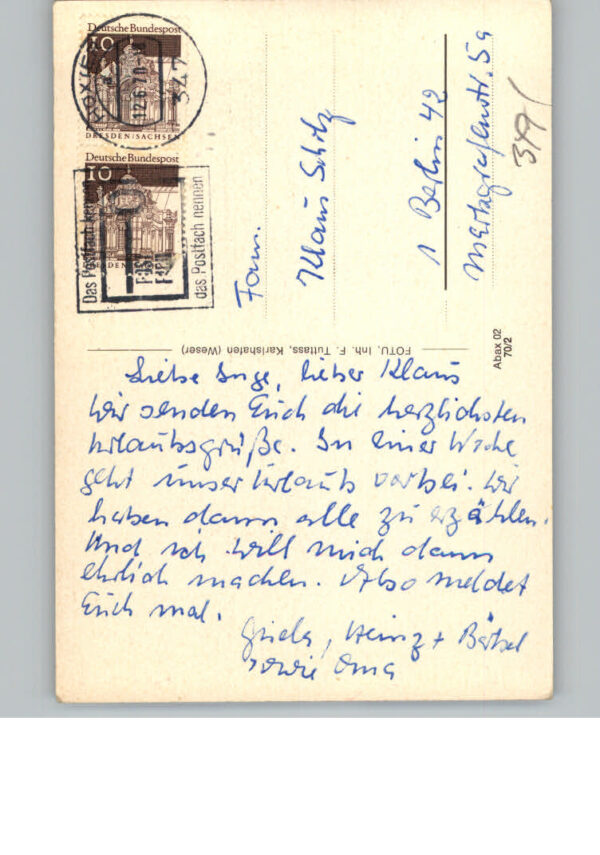 Deutsche Bundespost
10
DRESDEN/SACHSEN
HÖXTER
12.6.70
347
Deutsche Bundespost
10
Das Postfach kennen
das Postfach nennen
Fam.
Klaus
1 Berlin 42
5a
FOTU, Inh. F. Tuttass, Karlshafen (Weser)
Abax 02
70/2
Liebe Inge, lieber Klaus
Wir senden Euch die herzlichsten
Urlaubsgrüße. In einer Woche
geht unser Urlaub vorbei. Wir
haben dann alle zu erzählen.
Und ich will mich dann
ehrlich machen. Also meldet
Euch mal.
Gisela, Heinz + Bärbel
sowie Oma